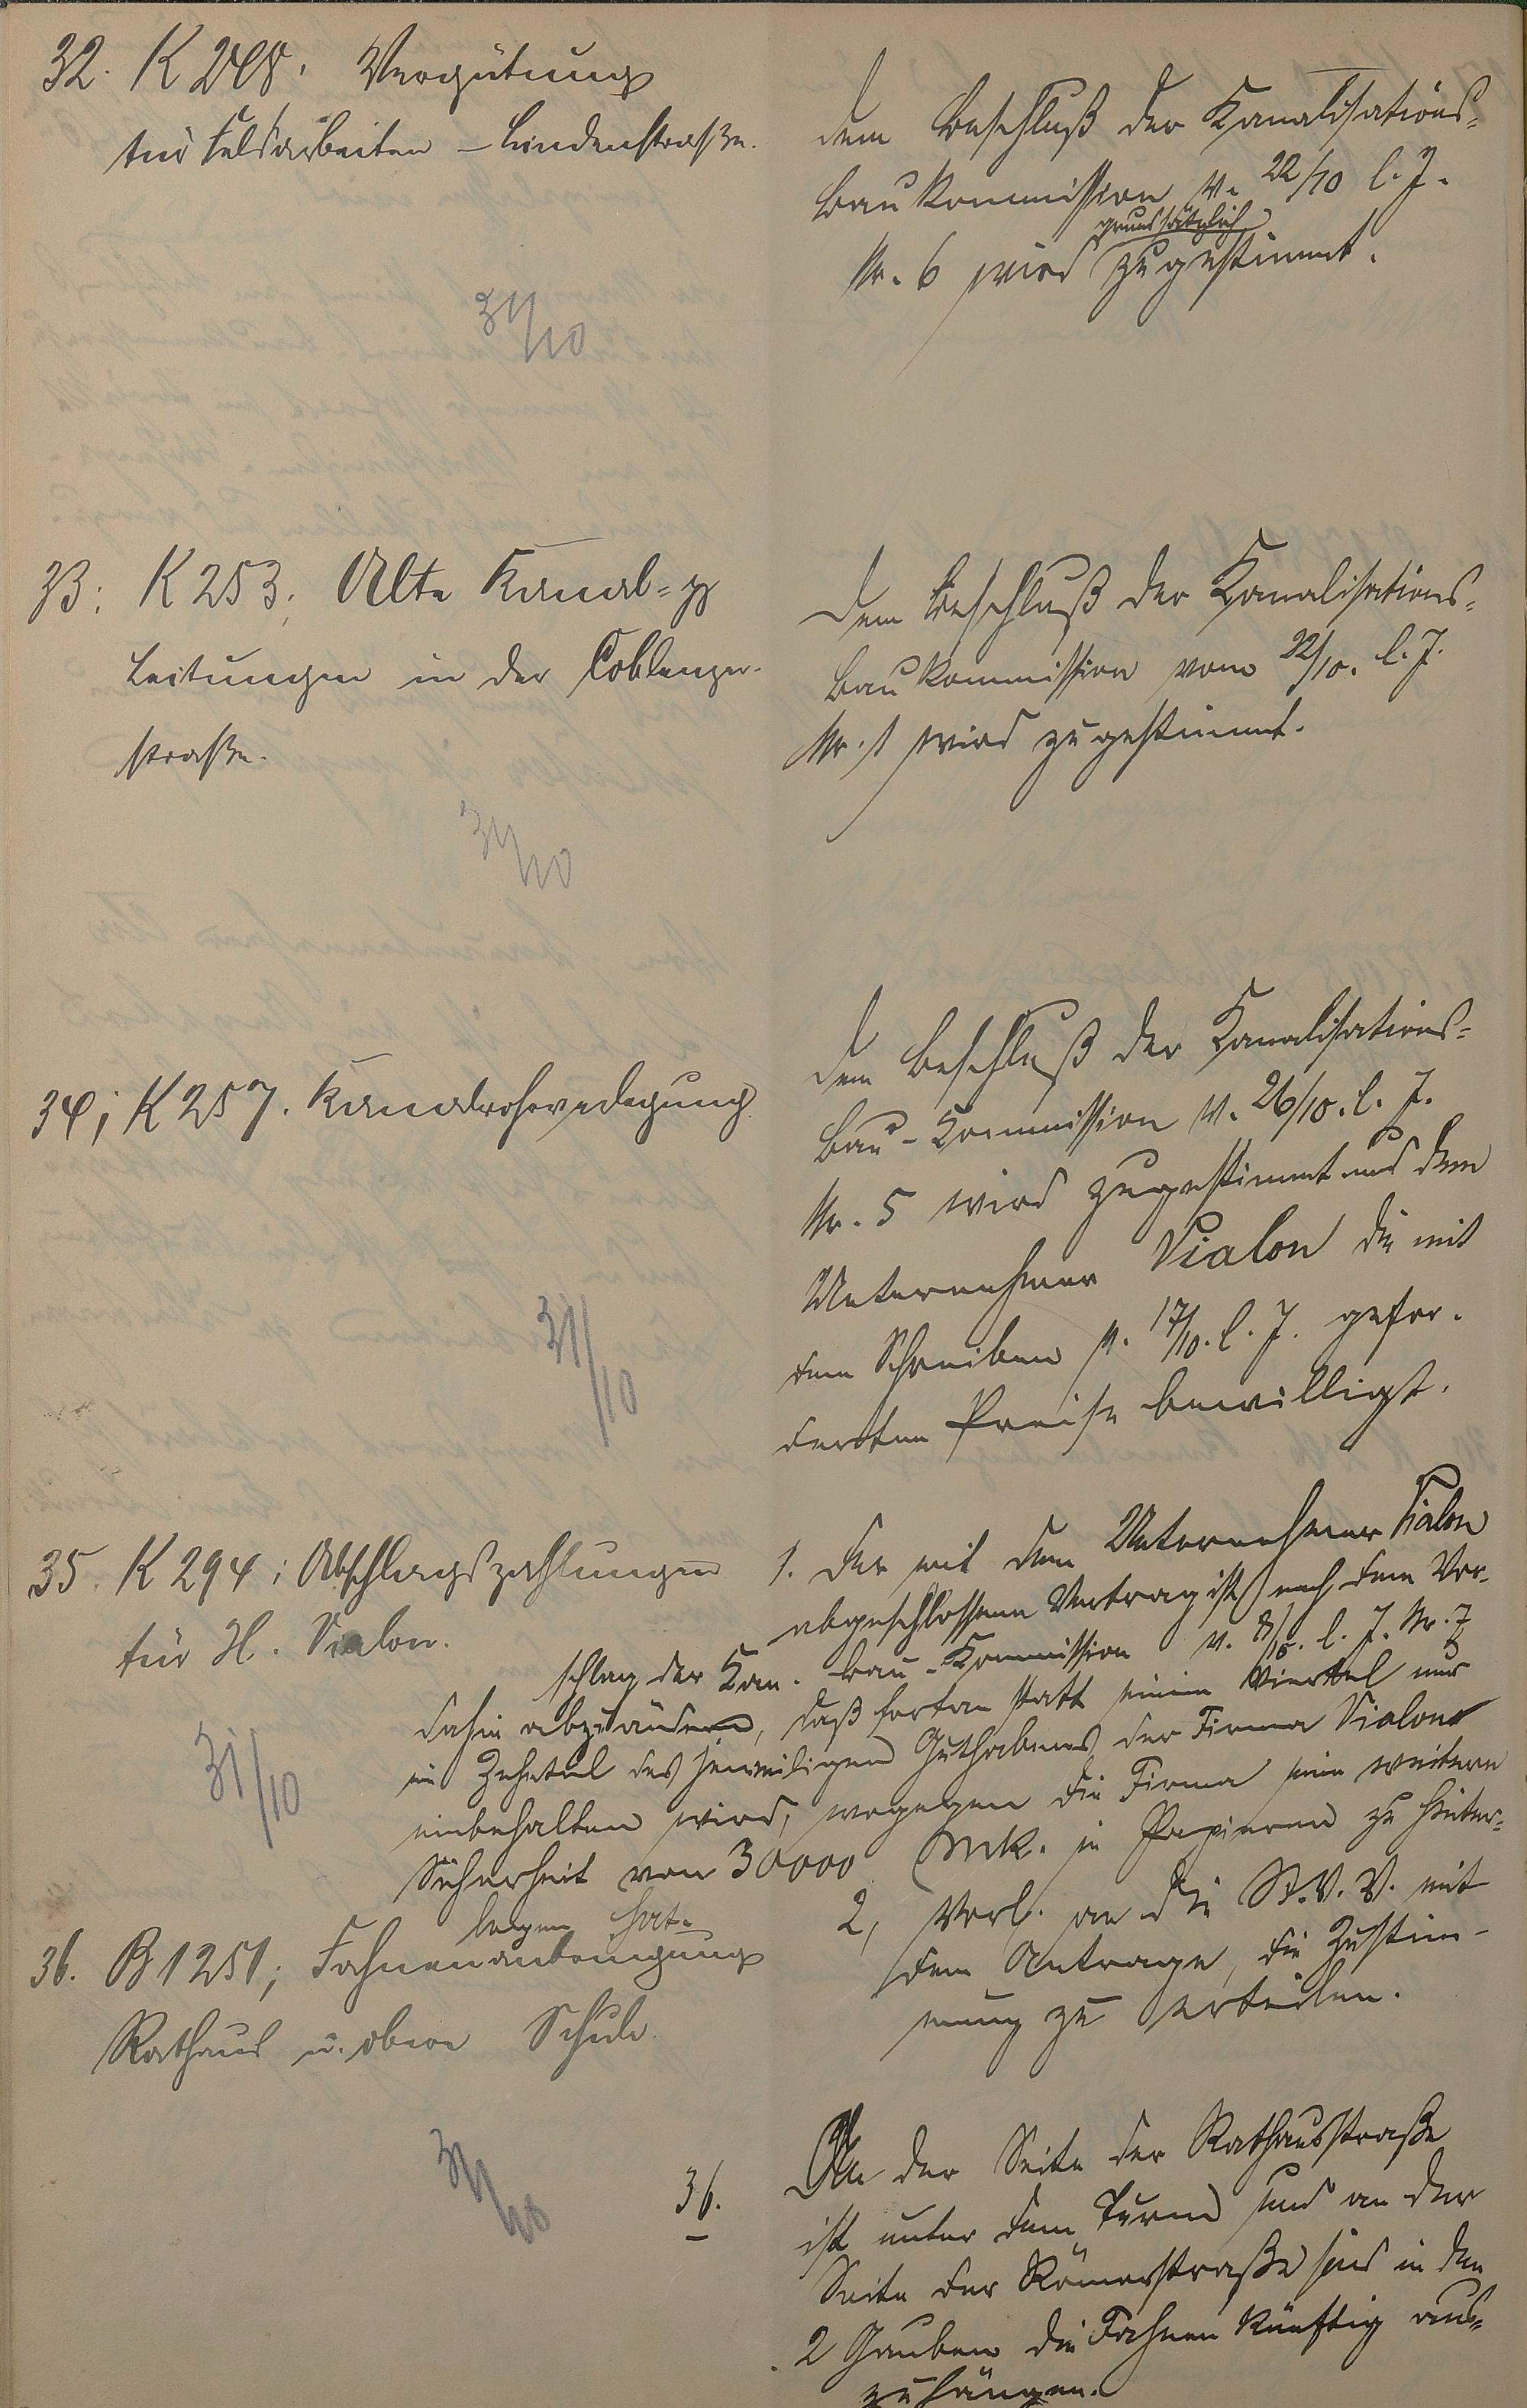 32. K 248. Vergütung
für Felsarbeiten - Lindenstraße.
31/10
Dem Beschluß der Kanalisations-
baukommission v. 22/10 l. J.
grundsätzlich
Nr. 6 wird zugestimmt.
33. K 253. Alte Kanal-
leitungen in der Coblenzer-
straße.
31/10
Dem Beschluß der Kanalisations-
baukommission vom 22/10. l. J.
Nr. 1 wird zugestimmt.
34; K 257. Kanalrohrverlegung
31/10
Dem Beschluß der Kanalisations-
bau-Kommission v. 26/10. l. J.
Nr. 5 wird zugestimmt und dem
Unternehmer Vialon die mit
dem Schreiben v. 17/10. l. J. gefor-
derten Preise bewilligt.
35. K 294; Abschlagszahlungen
für H. Vialon.
31/10
1. Der mit dem Unternehmer Vialon
abgeschlossene Vertrag ist nach dem Vor-
schlag der Kan. bau-Kommission v. 8/10. l. J. Nr. 7
dahin abzuändern, daß fortan statt einem Viertel nur
ein Zehntel des jeweiligen Guthabens der Firma Vialon
einbehalten wird, wogegen die Firma eine weitere
Sicherheit von 30000 Mk. in Papieren zu hinter-
legen hat.
2, Vorl. an die St.V.V. mit
dem Antrage, die Zustim-
mung zu erteilen.
36. B 1251; Fahnenanbringung
Rathaus u. obere Schule.
31/10
36.
An der Seite der Rathausstraße
ist unter dem Turm und an der
Seite der Römerstraße sind in den
2 Gauben die Fahnen künftig aus-
zuhängen.